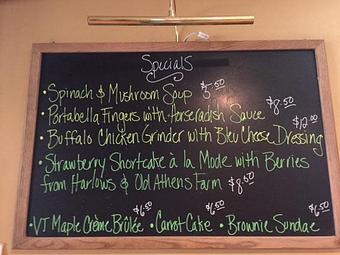 Specials
• Spinach & Mushroom Soup $5.50
• Portabella Fingers with Horseradish Sauce $8.50
• Buffalo Chicken Grinder with Bleu Cheese Dressing $12.00
• Strawberry Shortcake à la Mode with Berries
from Harlows & Old Athens Farm $8.50
• VT Maple Crème Brûlée $6.50 • Carrot Cake $6.50 • Brownie Sundae $6.50